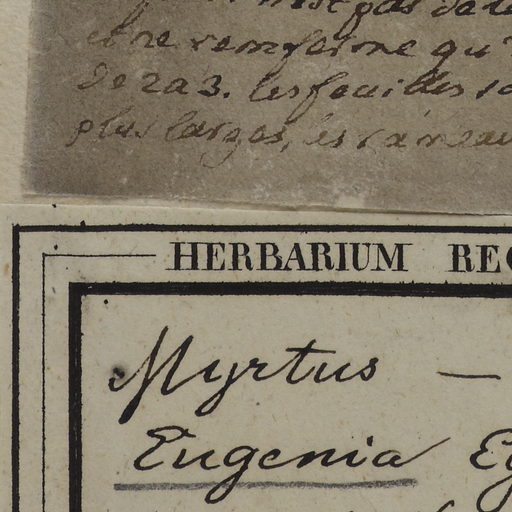 n'est pas de
et ne renferme qu'
de 2 a 3. les feuilles
plus larges, les rameau
HERBARIUM REG
Myrtus —
Eugenia Eg